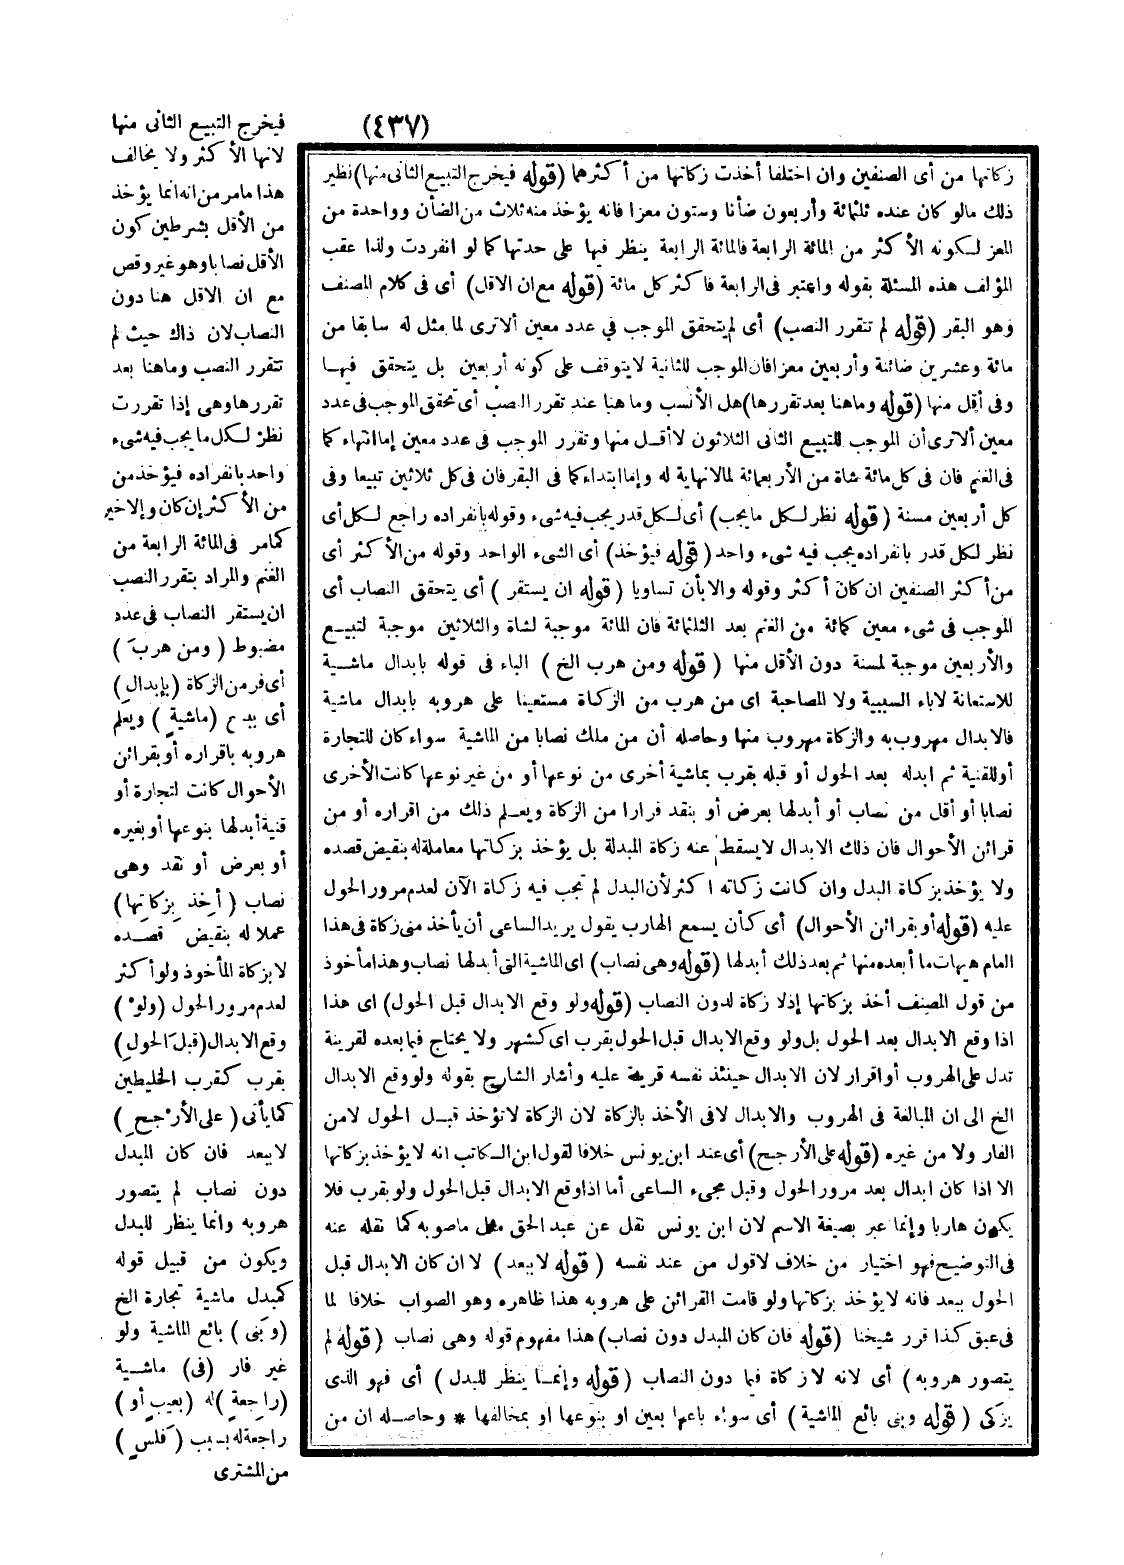 (٤٣٧)
فيخرج التبيع الثانى منها
لانها الأكثر ولا يخالف
هذا مامر من انه انما يؤخذ
من الأقل بشرطين كون
الأقل نصابا وهو غير وقص
مع ان الاقل هنا دون
النصاب لان ذاك حيث لم
تتقرر النصب وماهنا بعد
تقررها وهى إذا تقررت
نظر لكل ما يجب فيه شىء
واحد بانفراده فيؤخذ من
من الأكثر إن كان وإلا خير
كما مر فى المائة الرابعة من
الغنم والمراد بتقرر النصب
ان يستقر النصاب فى عدد
مضبوط (ومن هربَ)
أى فر من الزكاة (بإبدالِ)
أى بيع (ماشيةٍ) ويعلم
هروبه باقراره أو بقرائن
الأحوال كانت لتجارة أو
قنية أبدلها بنوعها أو بغيره
أو بعرض أو نقد وهى
نصاب (أُخِذ بِزكاتِها)
عملا له بنقيض قصده
لا بزكاة المأخوذ ولو أكثر
لعدم مرور الحول (ولوْ)
وقع الابدال (قبلَ الحولِ)
بقرب كقرب الخليطين
كما يأتى (على الأرْجحِ)
لا ببعد فان كان المبدل
دون نصاب لم يتصور
هروبه وانما ينظر للبدل
ويكون من قبيل قوله
كمبدل ماشية تجارة الخ
(وبَنى) بائع الماشية ولو
غير فار (فى) ماشية
(راجعةٍ) له (بعيبٍ أو)
راجعة له بسبب (فَلَسٍ)
من المشترى
زكاتها من أى الصنفين وان اختلفا أخذت زكاتها من أكثرهما (قوله فيخرج التبيع الثانى منها) نظير
ذلك مالو كان عنده ثلثمائة وأربعون ضأنا وستون معزا فانه يؤخذ منه ثلاث من الضأن وواحدة من
المعز لكونه الأكثر من المائة الرابعة فالمائة الرابعة ينظر فيها على حدتها كما لو انفردت ولذا عقب
المؤلف هذه المسئلة بقوله واعتبر فى الرابعة فأكثر كل مائة (قوله مع ان الاقل) أى فى كلام المصنف
وهو البقر (قوله لم تتقرر النصب) أى لم يتحقق الموجب في عدد معين ألا ترى لما مثل له سابقا من
مائة وعشرين ضائنة وأربعين معزا فان الموجب للثانية لا يتوقف على كونه أربعين بل يتحقق فيها
وفى أقل منها (قوله وماهنا بعد تقررها) هل الأنسب وما هنا عند تقرر النصب أى تحقق الموجب فى عدد
معين ألا ترى أن الموجب للتبيع الثانى الثلاثون لا أقل منها وتقرر الموجب فى عدد معين إما انتهاء كما
فى الغنم فان فى كل مائة شاة من الأربعمائة لما لا نهاية له وإما ابتداء كما فى البقر فان فى كل ثلاثين تبيعا وفى
كل أربعين مسنة (قوله نظر لكل ما يجب) أى لكل قدر يجب فيه شىء وقوله بانفراده راجع لكل أى
نظر لكل قدر بانفراده يجب فيه شىء واحد (قوله فيؤخذ) أى الشىء الواحد وقوله من الأكثر أى
من أكثر الصنفين ان كان أكثر وقوله والا بأن تساويا (قوله ان يستقر) أى يتحقق النصاب أى
الموجب فى شىء معين كمائة من الغنم بعد الثلثمائة فان المائة موجبة لشاة والثلاثين موجبة لتبيع
والأربعين موجبة لمسنة دون الأقل منها (قوله ومن هرب الخ) الباء فى قوله بابدال ماشية
للاستعانة لا باء السببية ولا المصاحبة اى من هرب من الزكاة مستعينا على هروبه بابدال ماشية
فالابدال مهروب به والزكاة مهروب منها وحاصله أن من ملك نصابا من الماشية سواء كان للتجارة
أو للقنية ثم ابدله بعد الحول أو قبله بقرب بماشية أخرى من نوعها أو من غير نوعها كانت الأخرى
نصابا أو أقل من نصاب أو أبدلها بعرض أو بنقد فرارا من الزكاة ويعلم ذلك من اقراره أو من
قرائن الأحوال فان ذلك الابدال لا يسقط عنه زكاة المبدلة بل يؤخذ بزكاتها معاملة له بنقيض قصده
ولا يؤخذ بزكاة البدل وان كانت زكاته اكثر لأن البدل لم تجب فيه زكاة الآن لعدم مرور الحول
عليه (قوله أو بقرائن الأحوال) أى كأن يسمع الهارب يقول يريد الساعى أن يأخذ منى زكاة فى هذا
العام هيهات ما أبعده منها ثم بعد ذلك أبدلها (قوله وهى نصاب) اى الماشية التى أبدلها نصاب وهذا مأخوذ
من قول المصنف أخذ بزكاتها إذ لا زكاة لدون النصاب (قوله ولو وقع الابدال قبل الحول) اى هذا
اذا وقع الابدال بعد الحول بل ولو وقع الابدال قبل الحول بقرب اى كشهر ولا يحتاج فيما بعده لقرينة
تدل على الهروب أو اقرار لان الابدال حينئذ نفسه قرينة عليه وأشار الشارح بقوله ولو وقع الابدال
الخ الى ان المبالغة فى الهروب والابدال لا فى الأخذ بالزكاة لان الزكاة لا تؤخذ قبل الحول لا من
الفار ولا من غيره (قوله على الأرجح) أى عند ابن يونس خلافا لقول ابن الكاتب انه لا يؤخذ بزكاتها
الا اذا كان ابدال بعد مرور الحول وقبل مجىء الساعى أما اذا وقع الابدال قبل الحول ولو بقرب فلا
يكون هاربا وإنما عبر بصيغة الاسم لان ابن يونس نقل عن عبد الحق مثل ما صوبه كما نقله عنه
فى التوضيح فهو اختيار من خلاف لا قول من عند نفسه (قوله لا ببعد) لا ان كان الابدال قبل
الحول ببعد فانه لا يؤخذ بزكاتها ولو قامت القرائن على هروبه هذا ظاهره وهو الصواب خلافا لما
فى عبق كذا قرر شيخنا (قوله فان كان المبدل دون نصاب) هذا مفهوم قوله وهى نصاب (قوله لم
يتصور هروبه) أى لانه لا زكاة فيما دون النصاب (قوله وإنما ينظر للبدل) أى فهو الذى
يزكى (قوله وبنى بائع الماشية) أى سواء باعها بعين او بنوعها او بمخالفها * وحاصله ان من